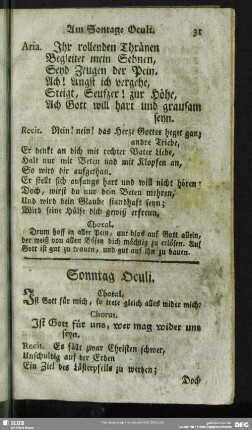 Am Sontage Oculi. 31
Aria. Ihr rollenden Thränen
Begleitet mein Sehnen,
Seyd Zeugen der Pein.
Ach! Angst ich vergehe,
Steigt, Seufzer! zur Höhe,
Ach Gott will hart und grausam
seyn.
Recit. Nein! nein! das Herze Gottes heget ganz
andre Triebe,
Er denkt an dich mit rechter Vater Liebe,
Halt nur mit Beten und mit Klopfen an,
So wird dir aufgethan.
Er stellt sich anfangs hart und will nicht hören
Doch, wirst du nur dein Beten mehren,
Und wird dein Glaube standhaft seyn;
Wird seine Hülfe dich gewiß erfreun.
Choral.
Drum hoff in aller Pein, und blos auf Gott allein,
der weiß von allen Bösen dich mächtig zu erlösen. Auf
Gott ist gut zu trauen, und gut auf ihn zu bauen.
Sonntag Oculi.
Choral.
Ist Gott für mich, so trete gleich alles wider mich?
Chorus.
Ist Gott für uns, wer mag wider uns
seyn.
Recit. Es fällt zwar Christen schwer,
Unschuldig auf der Erden
Ein Ziel des Lästerpfeils zu werden;
Doch